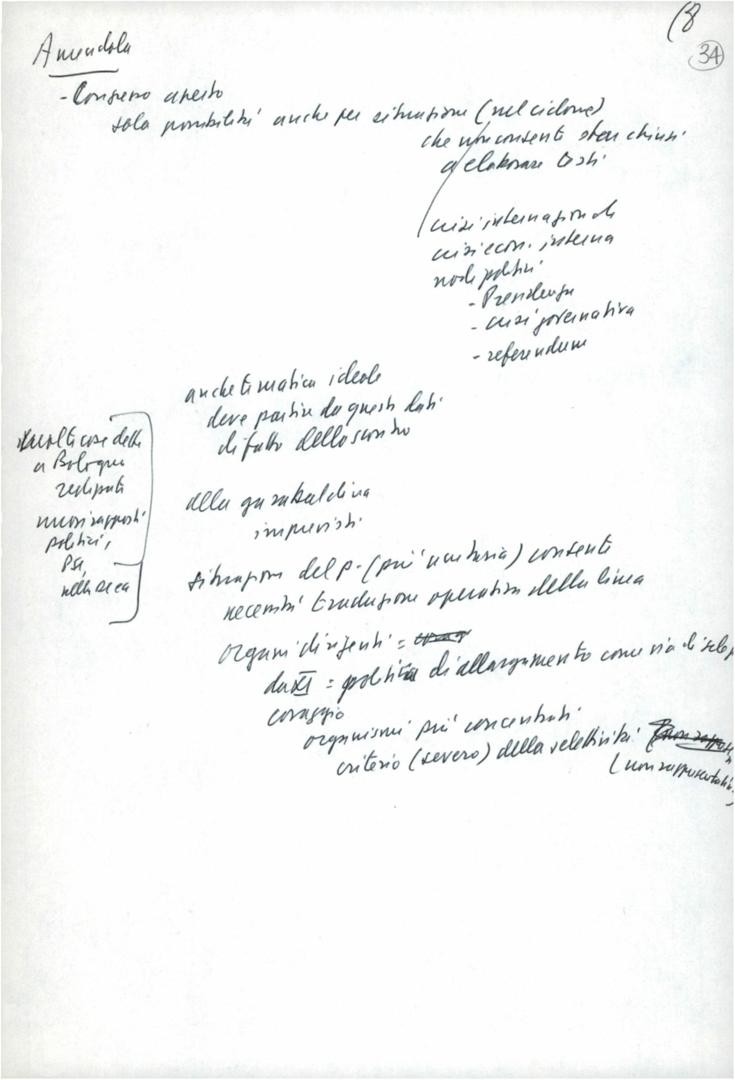 (8
34
Amendola
- Congresso aperto
sola possibilità anche per situazione (nel ciclone)
che non consente stare chiusi
a elaborare testi
crisi internazionale
crisi econ. interna
nodi politici
- Presidenza
- crisi governativa
- referendum
anche tematica ideale
deve partire da questi dati
di fatto dello scontro
molte cose dette
a Bologna
nuovi rapporti
politici,
Psi,
alla garibaldina
imprevisti
situazione del p. (più unitaria) consente
necessità traduzione operativa della linea
organi dirigenti =
da XI = politica di allargamento come via di
coraggio
organismi più concentrati
criterio (severo) della selettività
(non rappresentatività